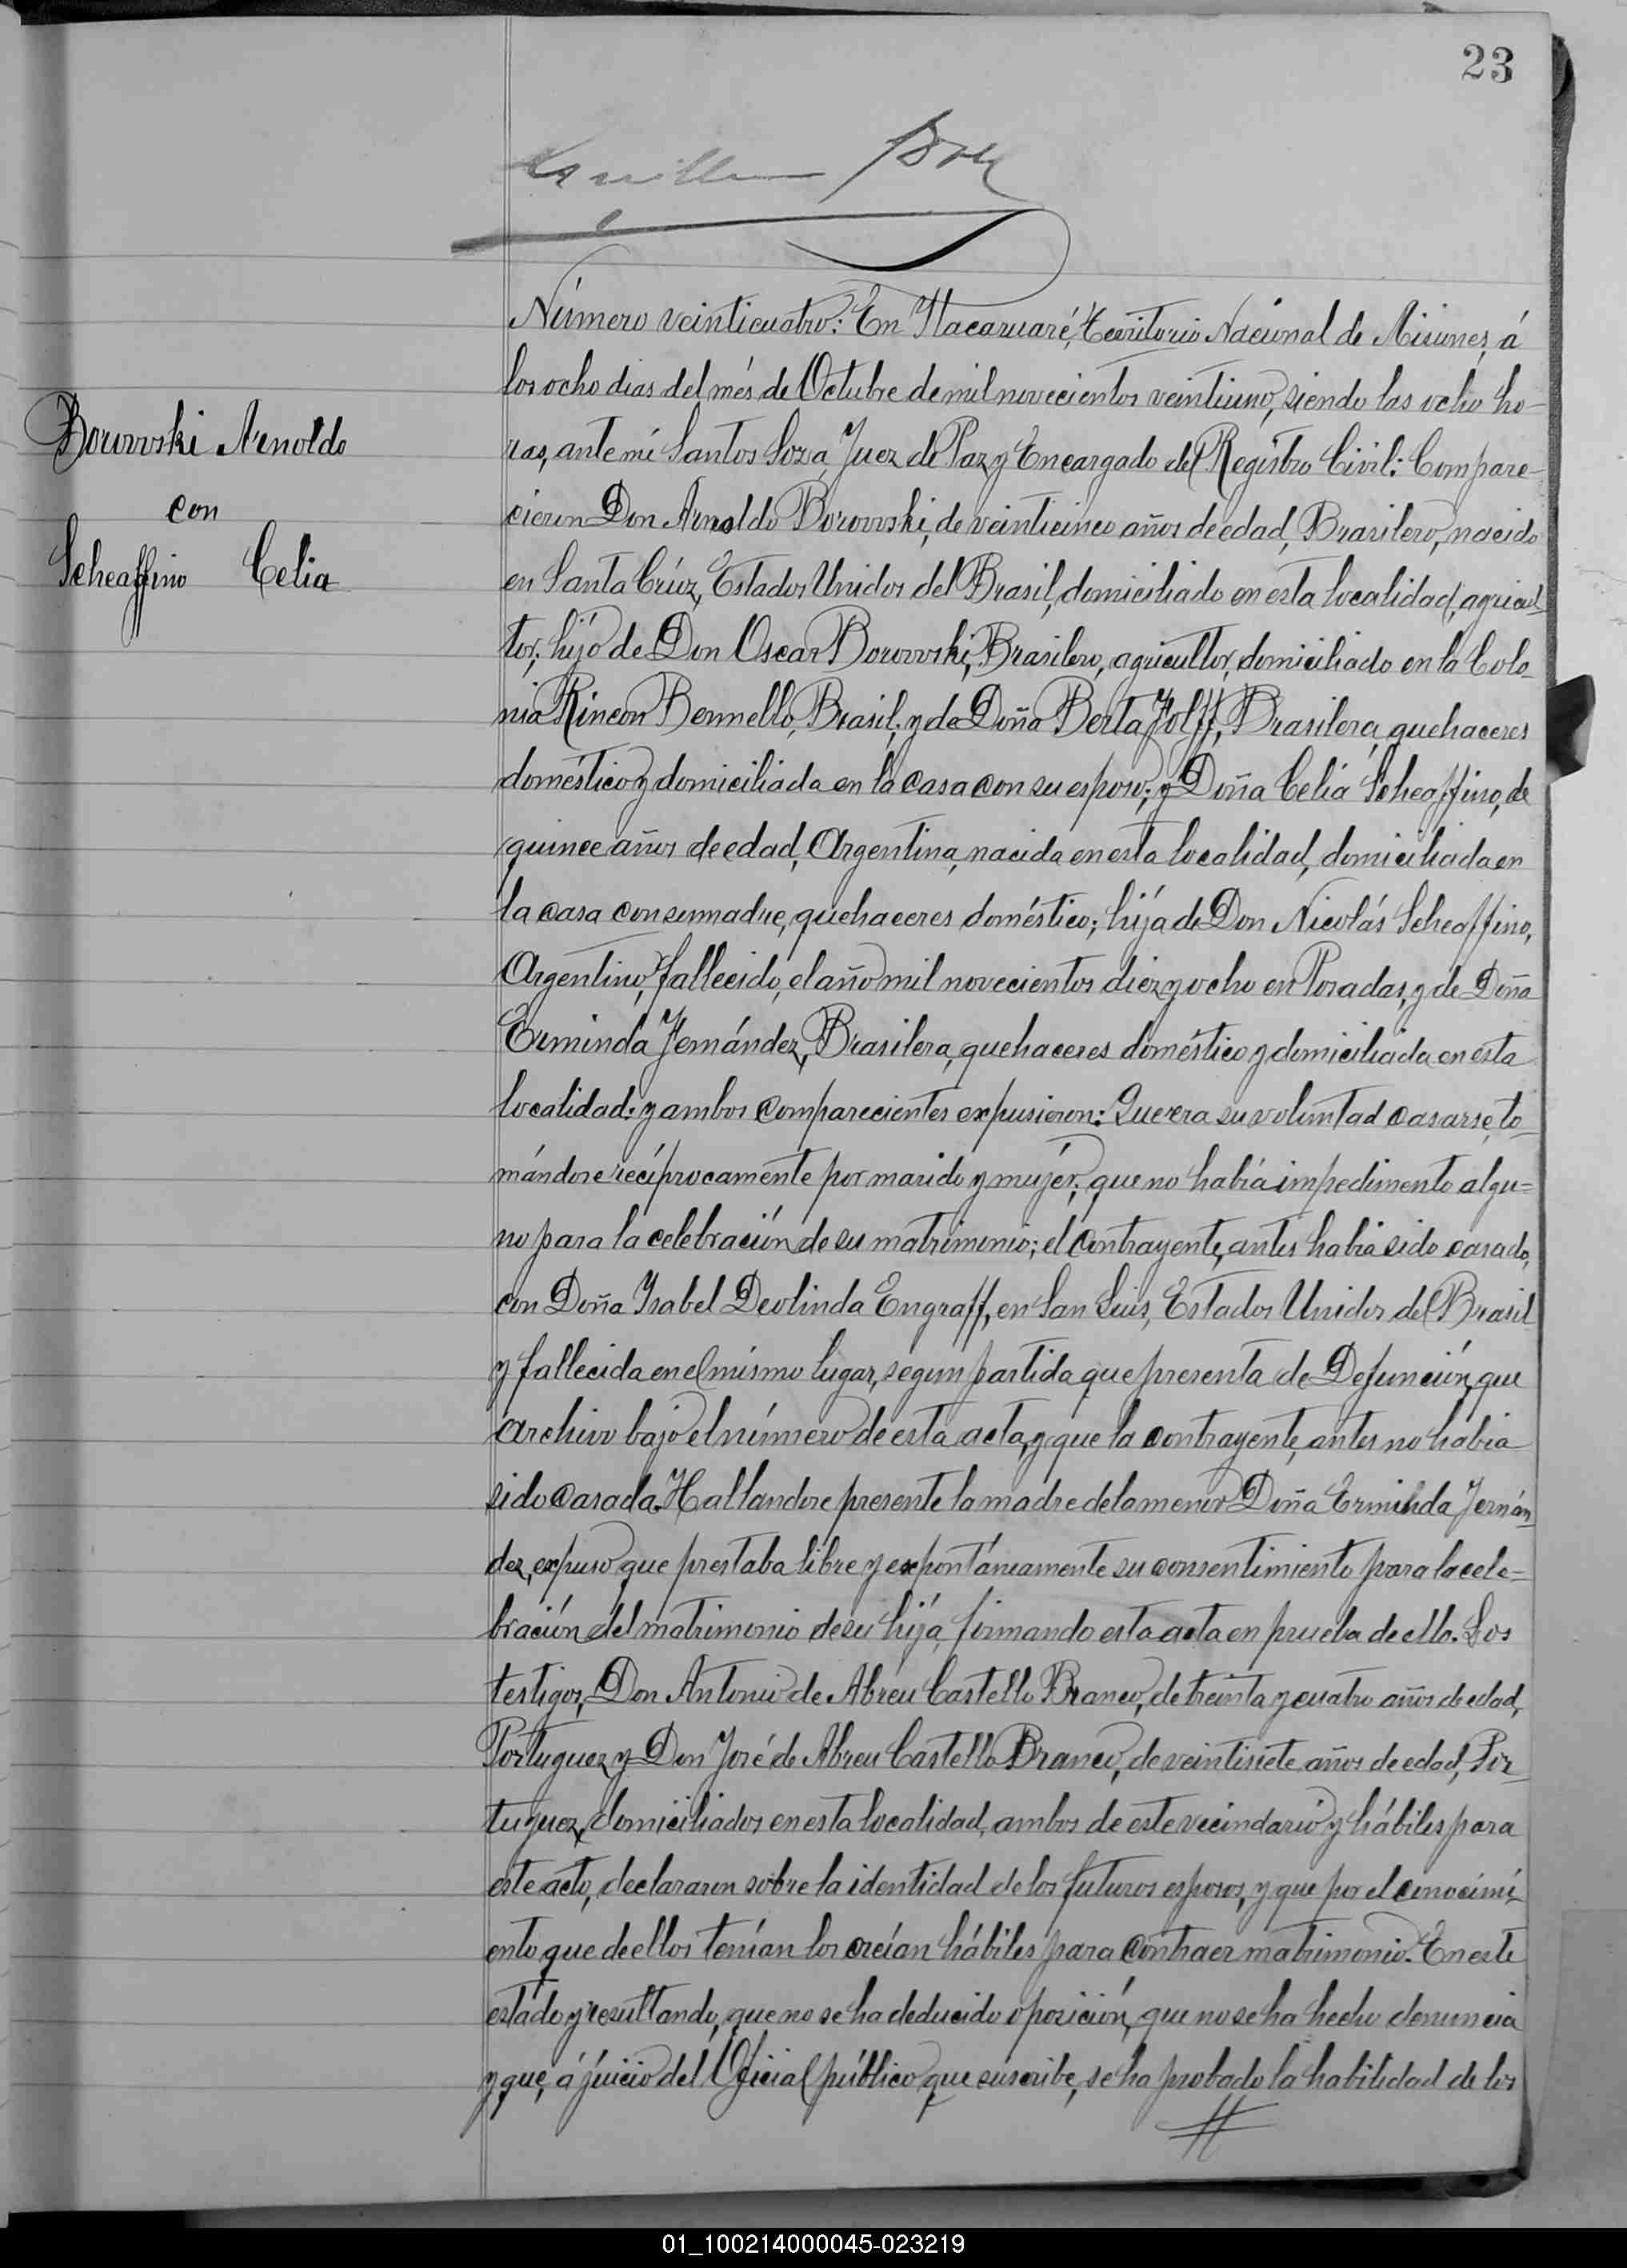 23
Número veinticuatro: En Itacaruaré, Territorio Nacional de Misiones, á
los ocho dias del més de Octubre de mil novecientos veintiuno, siendo las ocho ho-
Borowski Arnoldo
con
Scheaffino Celia
ras, ante mi Santos Soza, Juez de Paz y Encargado del Registro Civil: Compare-
cieron Don Arnoldo Borowski, de veinticinco años de edad, Brasilero, nacido
en Santa Crúz, Estados Unidos del Brasil, domiciliado en esta localidad, agricul-
tor; hijo de Don Oscar Borowski, Brasilero, agricultor, domiciliado en la Colo-
nia Rincon Bermello, Brasil; y de Doña Berta Holff, Brasilera, quehaceres
doméstico y domiciliada en la casa con su esposo; y Doña Celia Scheaffino, de
quince años de edad, Argentina, nacida en esta localidad, domiciliada en
la casa con su madre, quehaceres doméstico; hija de Don Nicolás Scheaffino,
Argentino, fallecido, el año mil novecientos diez y ocho en Posadas, y de Doña
Erminda Fernández, Brasilera, quehaceres doméstico y domiciliada en esta
localidad: y ambos comparecientes expusieron: Que era su voluntad casarse, to-
mándose recíprocamente por marido y mujér; que no había impedimento algu-
no para la celebración de su matrimonio; el contrayente, antes habia sido casado,
con Doña Isabel Deolinda Engraff, en San Luis, Estados Unidos del Brasil
y fallecida en el mismo lugar, segun partida que presenta de Defunción, que
archivo bajo el número de esta acta, y que la contrayente, antes no habia
sido casada. Hallandose presente la madre de la menor Doña Erminda Fernán-
dez, expuso que prestaba libre y expontáneamente su consentimiento para la cele-
bración del matrimonio de su hija, firmando esta acta en prueba de ello. Los
testigos, Don Antonio de Abreu Castello Branco, de treinta y cuatro años de edad,
Portuguez y Don José de Abreu Castello Branco, de veintisiete años de edad, Por-
tuguez, domiciliados en esta localidad, ambos de este vecindario y hábiles para
este acto, declararon sobre la identidad de los futuros esposos, y que por el conocimi-
ento que de ellos tenían los creían hábiles para contraer matrimonio. En este
estado y resultando, que no se ha deducido oposición, que no se ha hecho denuncia
y que, á juicio del Oficial público que suscribe, se ha probado la habilidad de los
01_100214000045-023219